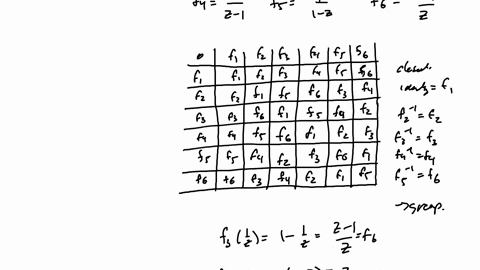 f4 = z/z-1 f5 = 1/1-z f6 = /z
o f1 f2 f3 f4 f5 f6
f1 f1 f2 f3 f4 f5 f6
f2 f2 f1 f5 f6 f3 f4
f3 f3 f6 f1 f5 f4 f2
f4 f4 f5 f6 f1 f2 f3
f5 f5 f4 f2 f3 f6 f1
f6 f6 f3 f4 f2 f1 f5
closed.
identity = f1
f2^-1 = f2
f3^-1 = f3
f4^-1 = f4
f5^-1 = f6
→ group.
f3(1/z) = 1 - 1/z = z-1/z = f6